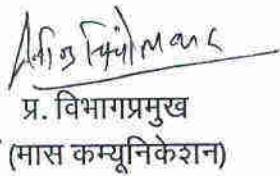 प्र. विभागप्रमुख
(मास कम्यूनिकेशन)